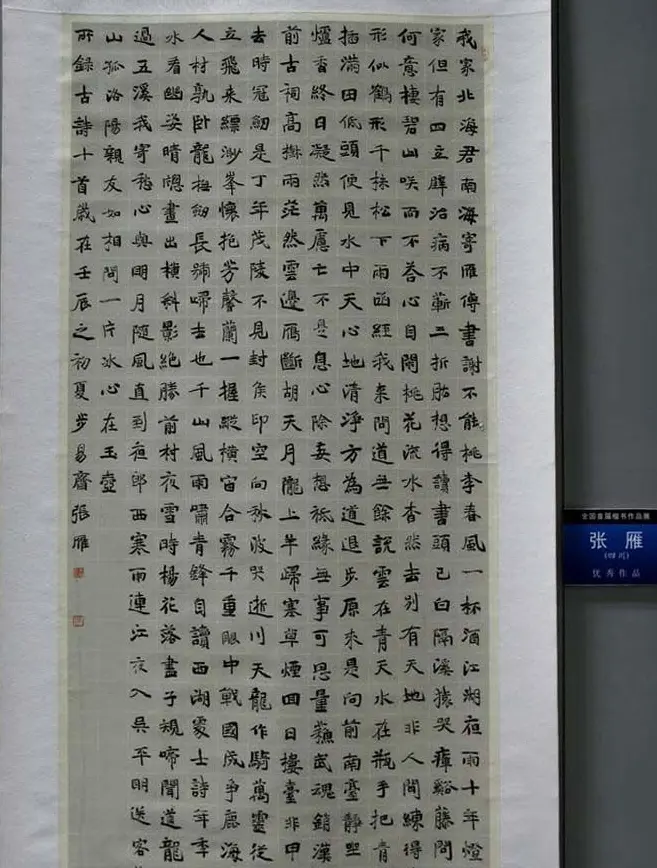 我家北海君南海寄雁傳書謝不能桃李春風一杯酒江湖夜雨十年燈
家但有四立壁治病不蘄三折肱想得讀書頭已白隔溪猿哭瘴谿藤問
何意棲碧山咲而不荅心自閑桃花流水杳然去別有天地非人間練得
形似鶴形千株松下兩函經我来問道無餘說雲在青天水在瓶手把青
插滿田低頭便見水中天心地清淨方為道退步原来是向前南臺靜坐
爐香終日凝然萬慮亡不是息心除妄想祗緣無事可思量蘇武魂銷漢
前古祠高樹兩茫然雲邊雁斷胡天月隴上羊歸塞草煙回日樓臺非甲
去時冠劍是丁年茂陵不見封侯印空向秋波哭逝川天龍作騎萬靈從
立飛来縹渺峯懷抱芳馨蘭一握縱橫宙合霧千重眼中戰國成爭鹿海
人材孰卧龍撫劍長號啼去也千山風雨嘯青鋒自讀西湖處士詩年年
水看幽姿晴窗畫出橫斜影絕勝前村夜雪時楊花落盡子規啼聞道龍
過五溪我寄愁心與明月隨風直到夜郎西寒雨連江夜入吳平明送客
山孤洛陽親友如相問一片冰心在玉壺
所録古詩十首歲在壬辰之初夏步易齋張雁
全国首届楷书作品展
张 雁
(四川)
优秀作品